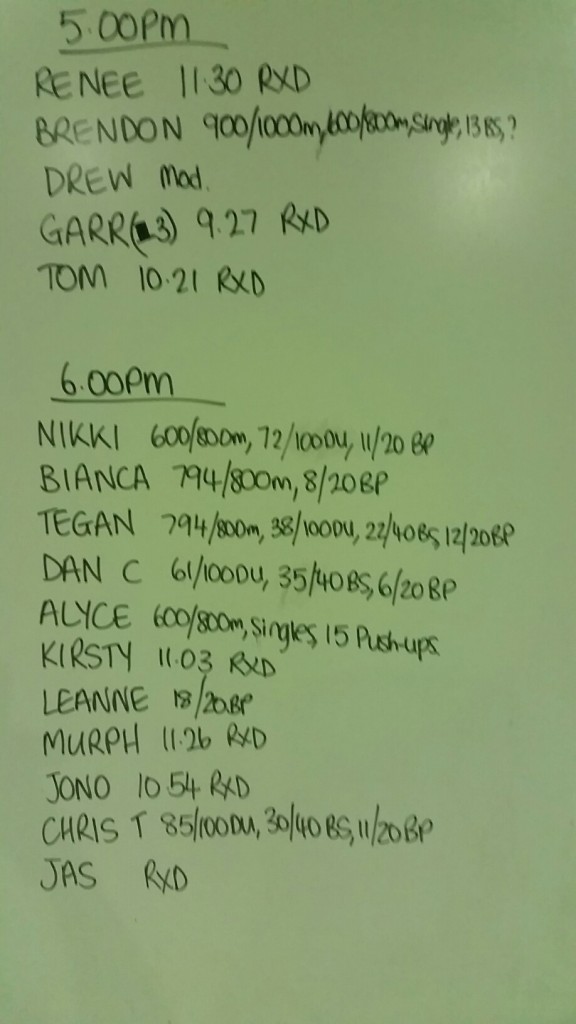 5.00PM
RENEE 11.30 RXD
BRENDON 900/1000m, 600/800m, Single, 13 BS, ?
DREW Mod.
GARR( 3) 9.27 RXD
TOM 10.21 RXD
6.00PM
NIKKI 600/800m, 72/100DU, 11/20 BP
BIANCA 794/800m, 8/20BP
TEGAN 794/800m, 38/100DU, 22/40BS, 12/20BP
DAN C 61/100DU, 35/40BS, 6/20BP
ALYCE 600/800m, Singles, 15 Push-ups
KIRSTY 11.03 RXD
LEANNE 18/20BP
MURPH 11.26 RXD
JONO 10 54 RXD
CHRIS T 85/100DU, 30/40BS, 11/20BP
JAS RXD